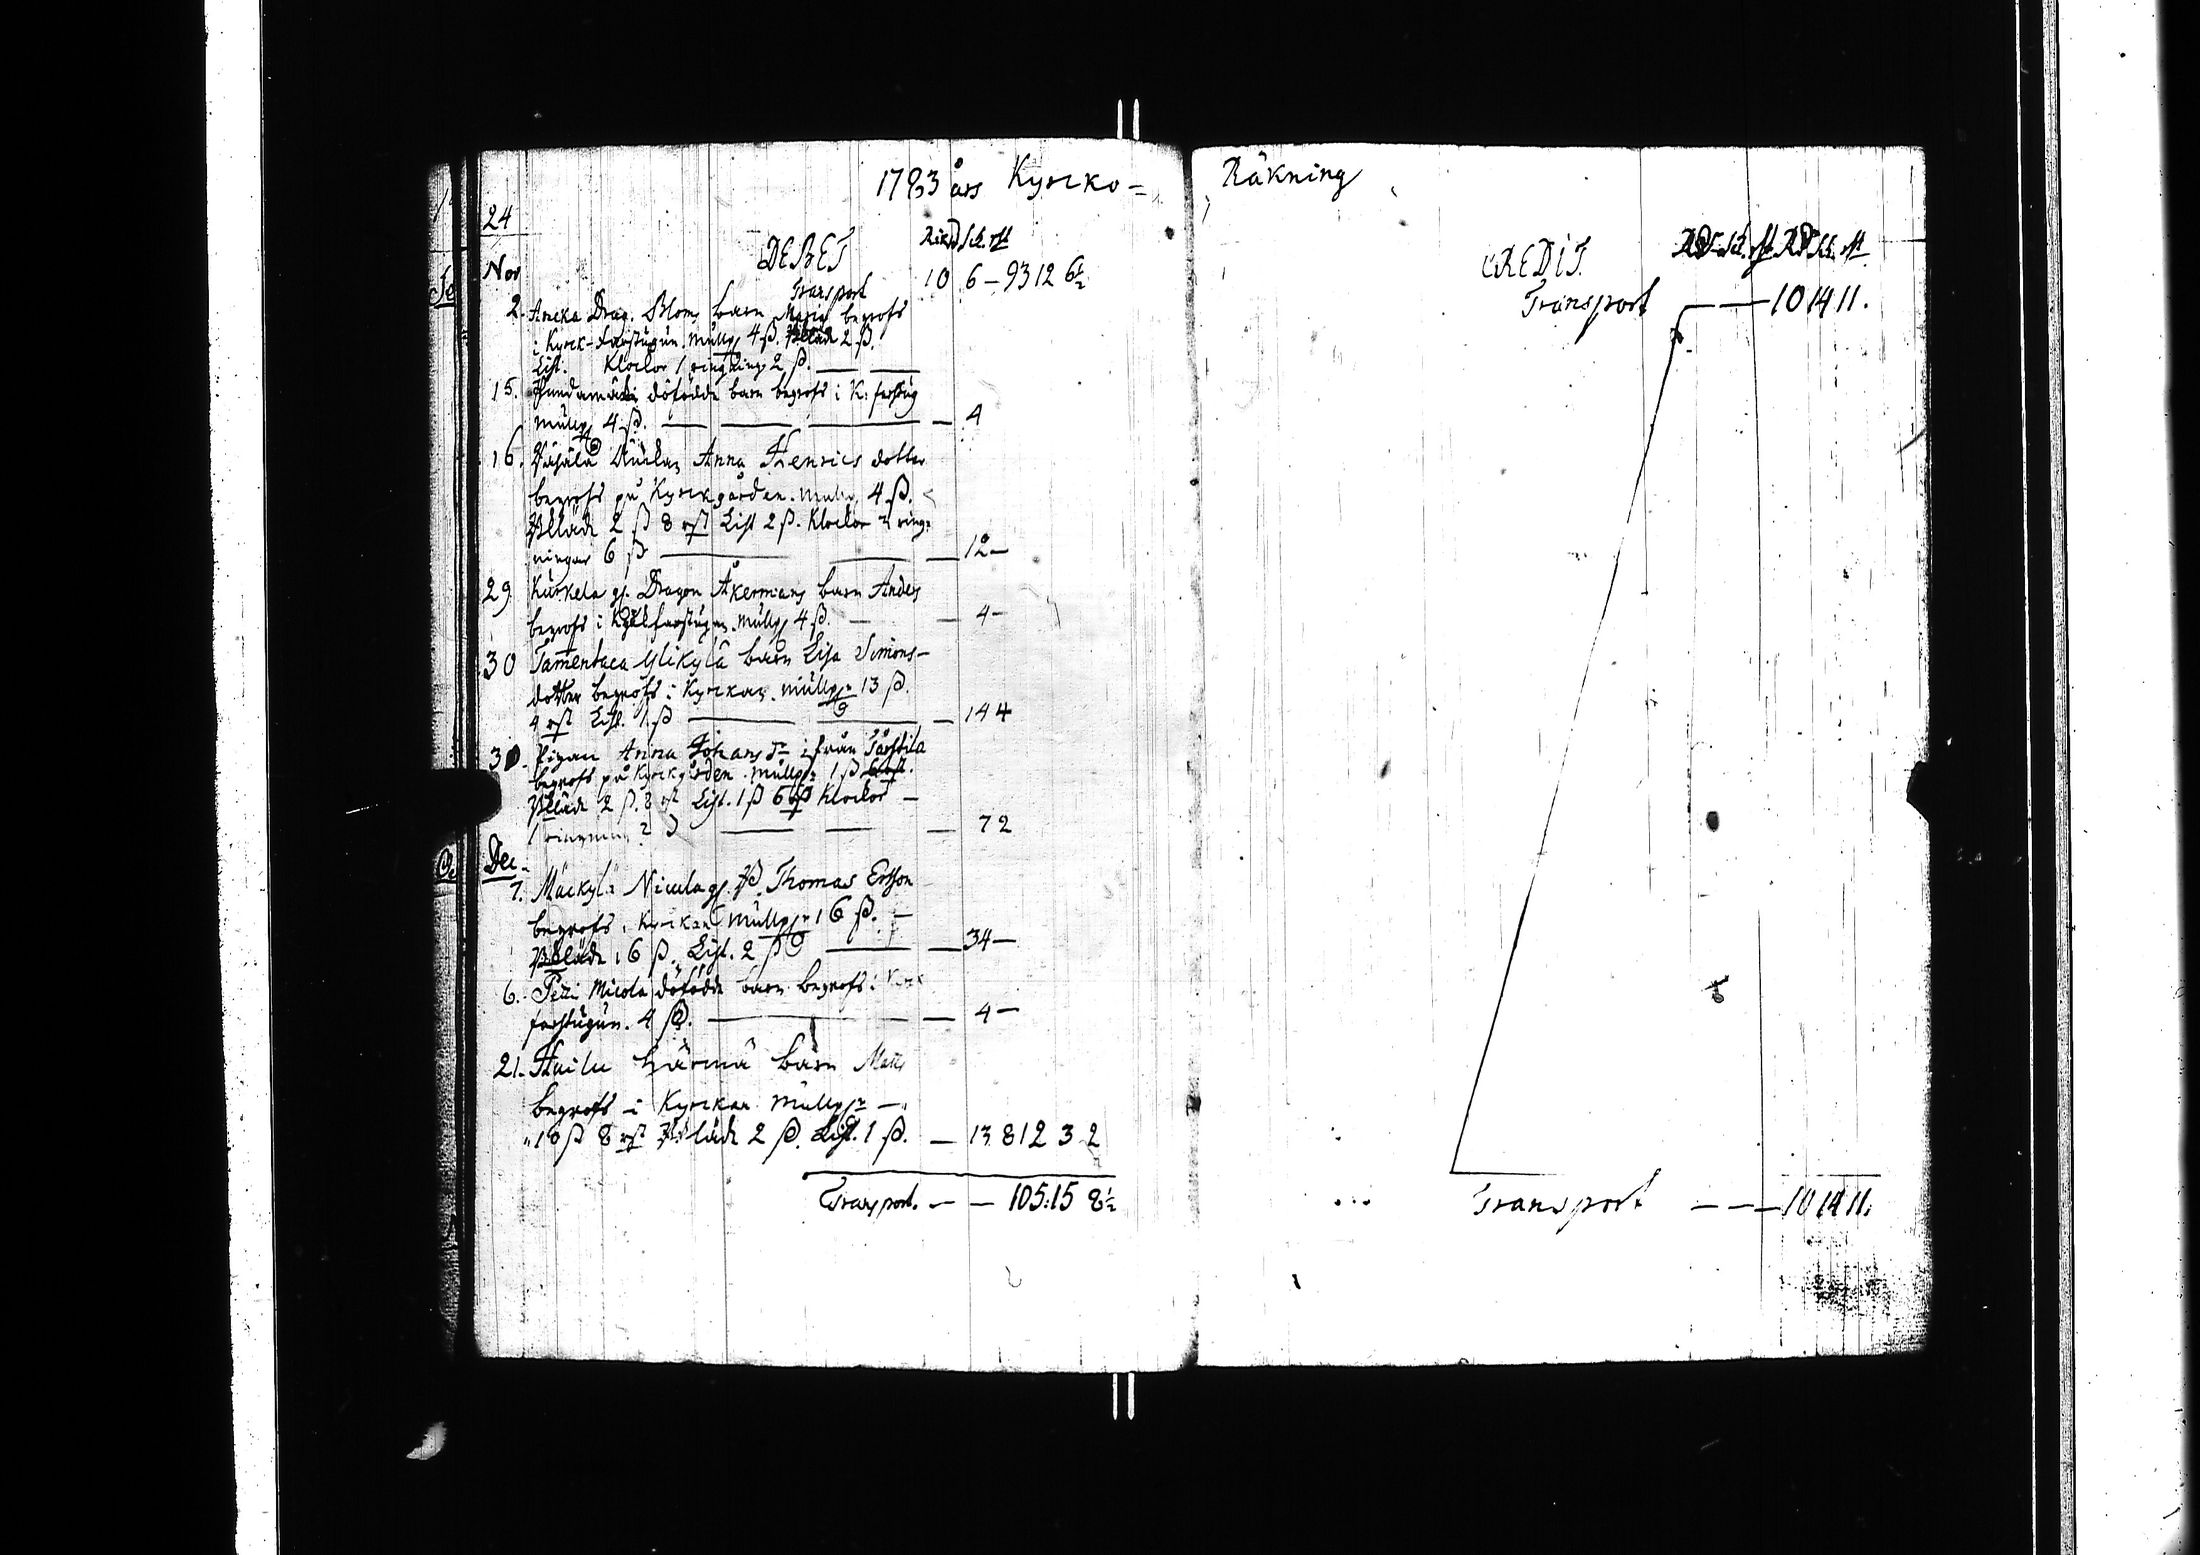 1783 års Kyrcko=
24
DEBET
Riksd. sk. rst
Nov
Transport 10 6 — 93 12 6½
2. Aneka Drag. Bloms barn Maria begrofs
i Kyrck-farstugun. Mullp 4 ß. Bkläde 2 ß.
List. Klockor 1 ringning 2 ß. — —
15. döfödde barn begrofs i K: farstug
mullp 4 ß. — — — — 4
16. Änckan Anna Henrics dotter
begrofs på Kyrckgården. mullp 4 ß.
Bkläde 2 ß 8 rst List 2 ß. Klockor 2 ring-
ningar 6 ß — — — 12 —
29 Kurkela gl. Dragon Åkermans barn Anders
begrofs i Kyrckfarstugun. Mullp 4 ß. — — 4 —
30 Tammentaca Ylikylä barn Lisa Simons-
dotter begrofs i Kyrckan. Mullp 13 ß.
4 rst List. 1 ß — — — 14 4
30. Pigan Anna Johans dr ifrån
begrofs på Kyrckgården. Mullp 1 ß
Bkläde 2 ß. 8 rst List. 1 ß 6 rst Klockor —
1 ringning 2 — — — 7 2
Dec.
1. Mäckylä Nicula gl. Thomas Ersson
begrofs i Kyrckan Mullp 16 ß. —
Bkläde 16 ß. List. 2 ß — — 34 —
6. Petti Micola döfödde barn begrofs i Kyrck
farstugun. 4 ß. — — 4 —
21. Hailu Härmä barn Matts
begrofs i Kyrckan Mullp —
10 ß 8 rst Bkläde 2 ß. List. 1 ß. — 13 8 12 3 2
Transport. — — 105:15 8½
Räkning
CREDIT.
RD sk. rst RD sk. rst
Transport — — 10 14 11.
Transport — — — 10 14 11.